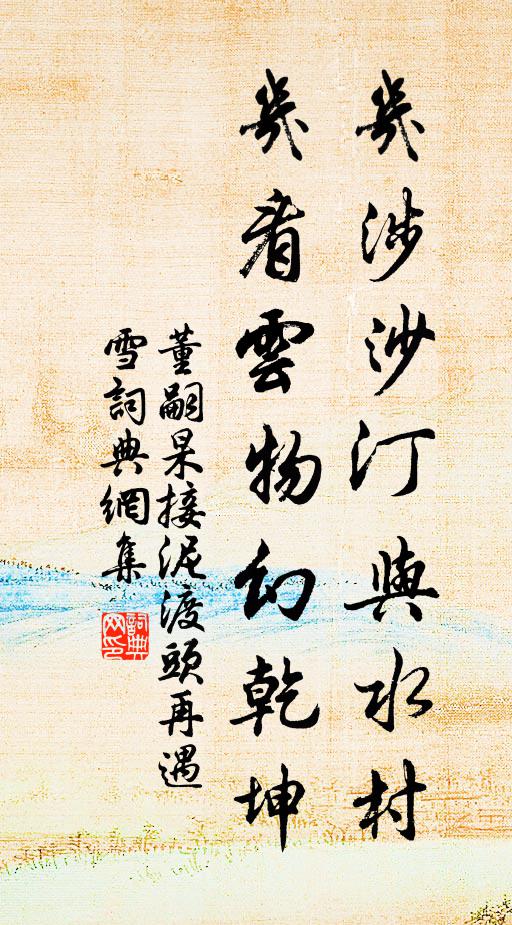 幾涉沙汀與水村
幾看雲物幻乾坤
董嗣杲接泥渡頭再遇
雪詞典網集
詞典网印